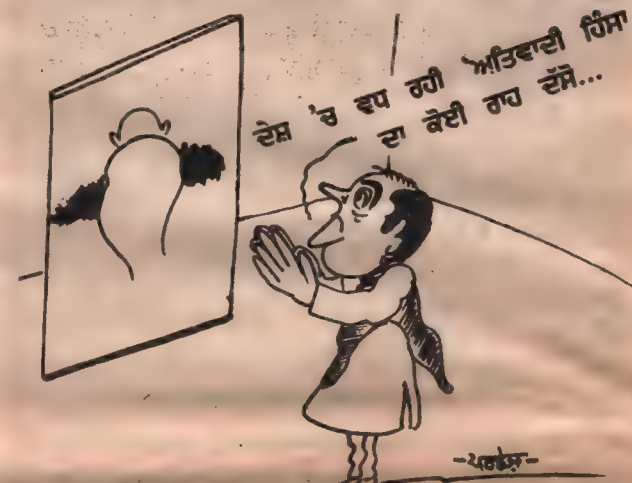 ਦੇਸ਼ 'ਚ ਵਧ ਰਹੀ ਅਤਿਵਾਦੀ ਹਿੰਸਾ
ਦਾ ਕੋਈ ਰਾਹ ਦੱਸੋ...